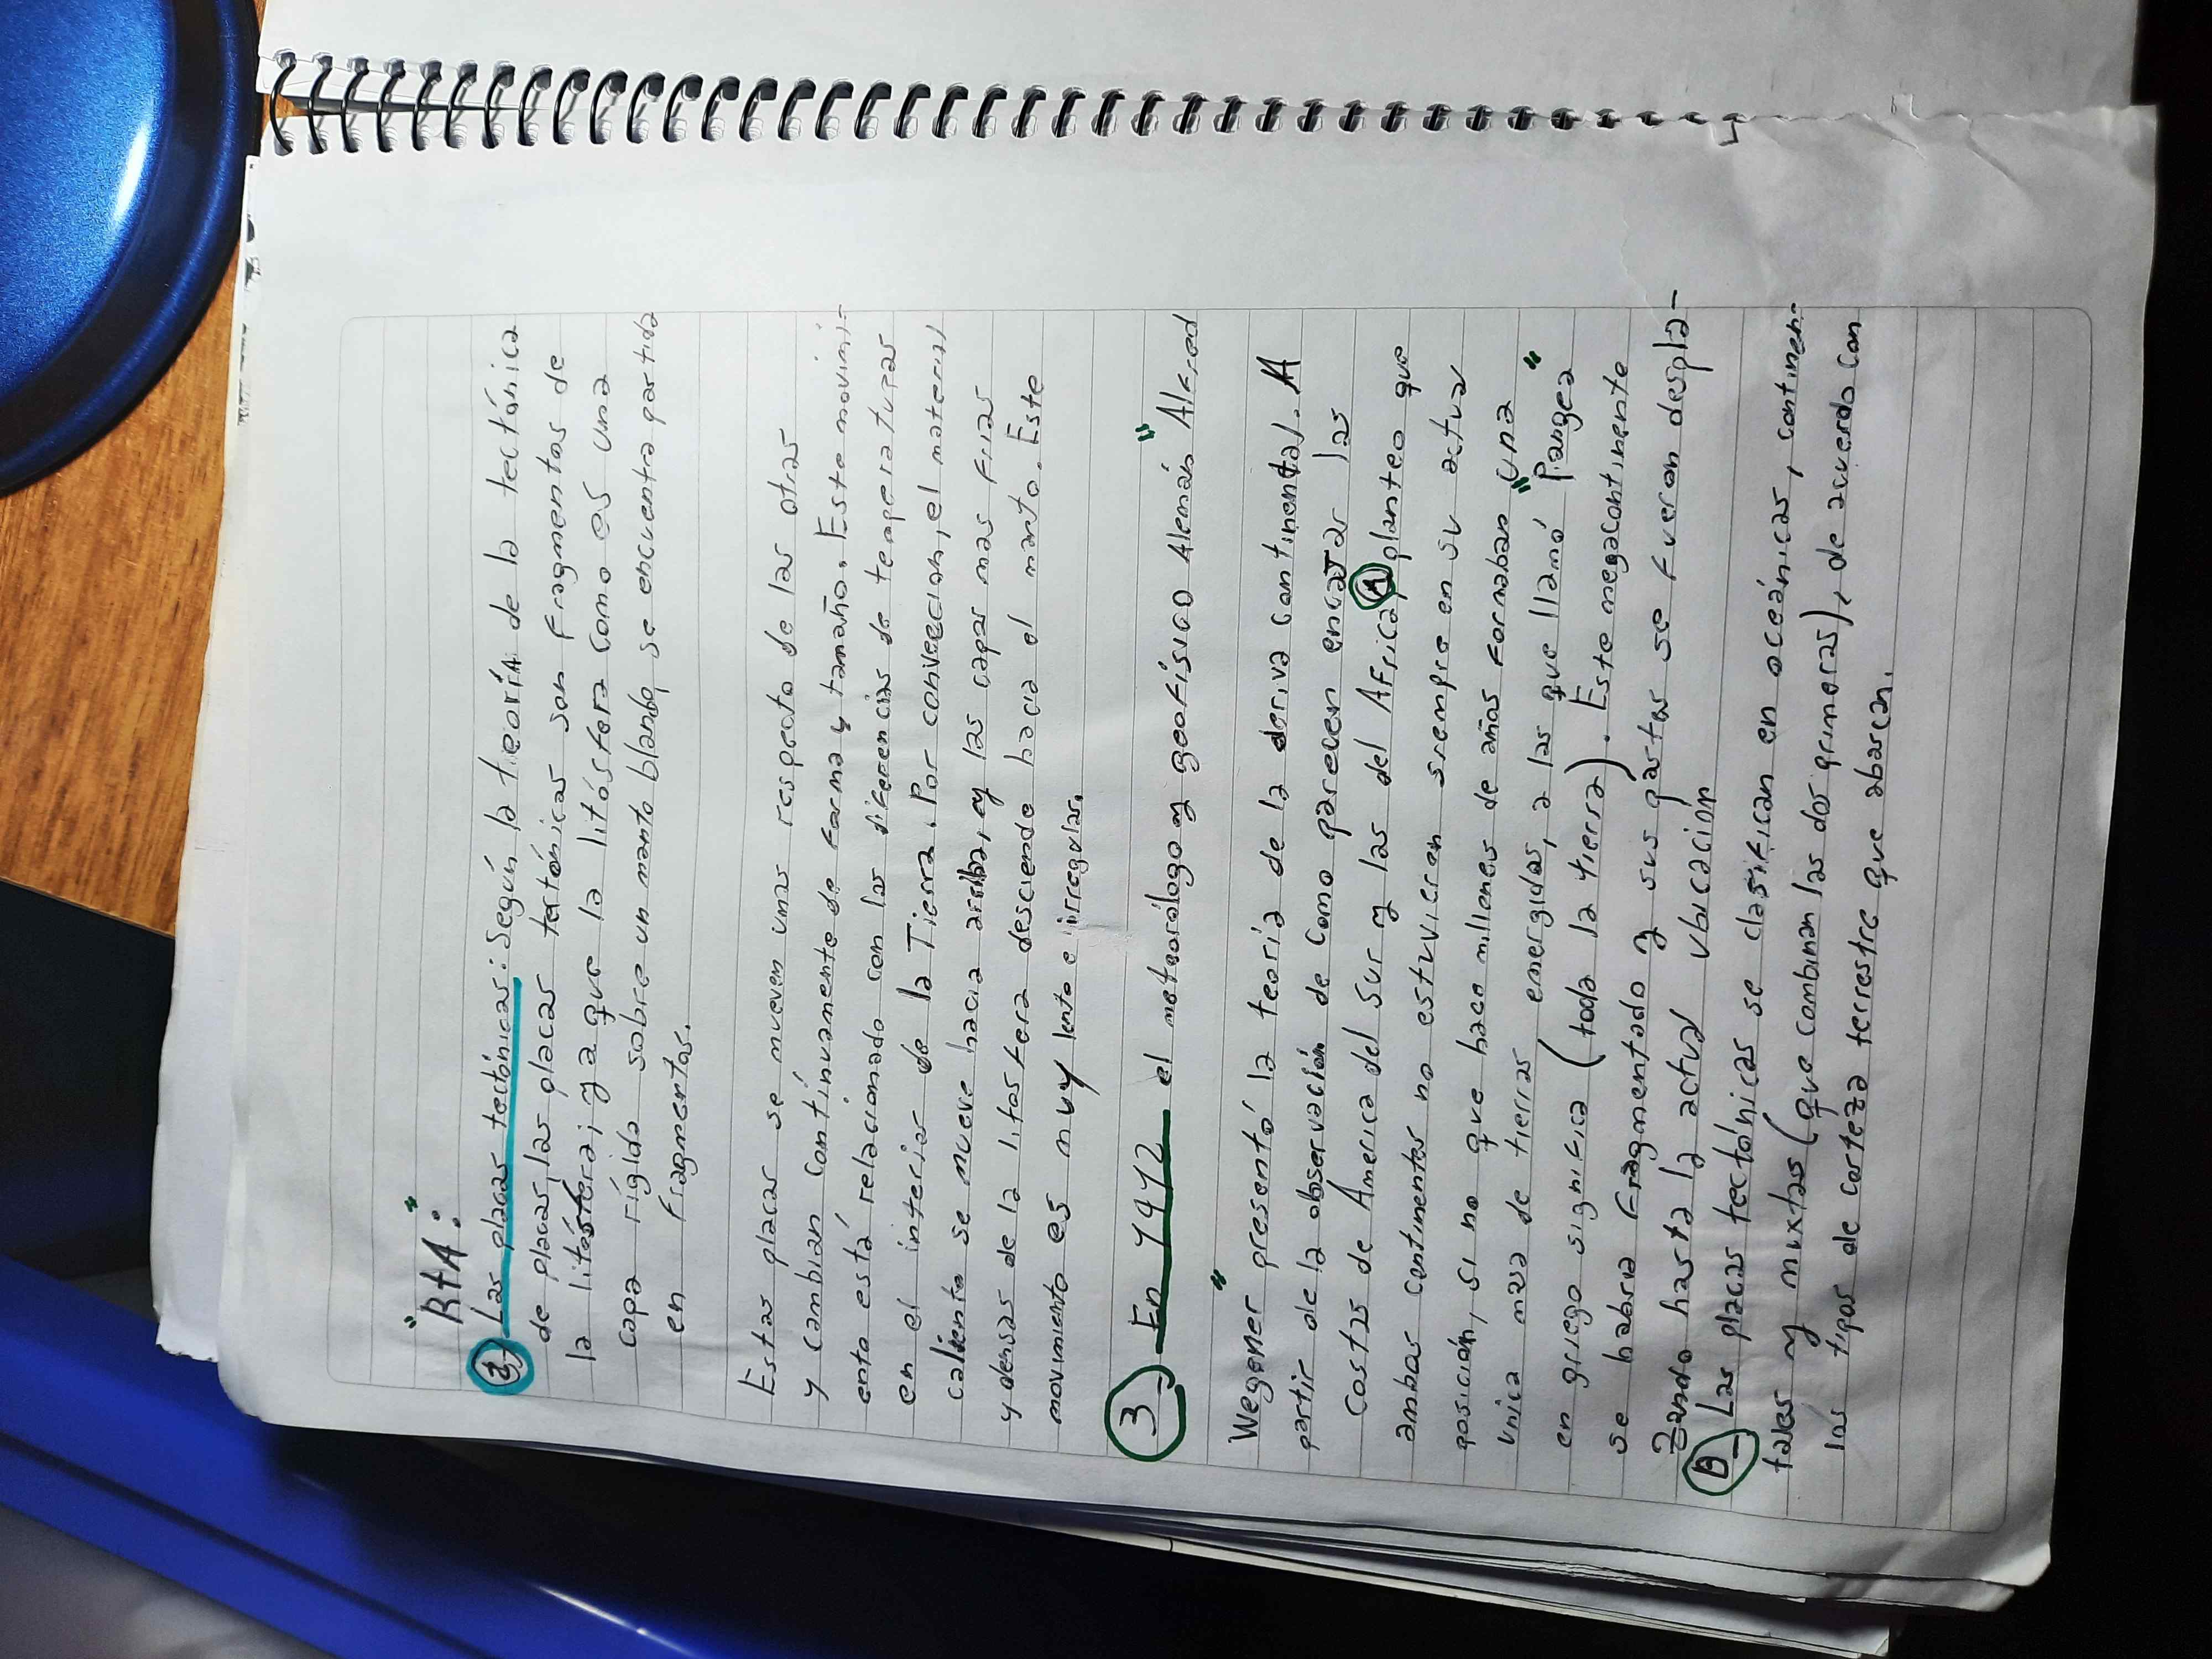 "RtA:"
2) Las placas tectónicas: Según la tieoríA de la tectónica
de placas, las placas tectónicas son fragmentos de
la litósfera; ya que la litósfera como es una
capa rígida sobre un manto blando, se encuentra partida
en fragmentos.
Estas placas se mueven unas respecto de las otras
y cambian contínuamente de forma y tamaño. Este movimi-
ento está relacionado con las diferencias de temperaturas
en el interior de la Tierra. Por conveccion, el material
caliente se mueve hacia arriba, y las capas mas frias
y densas de la litosfera desciende hacia el manto. Este
movimiento es muy lento e irregular.
3 - En 1912 el meteorólogo y geofísico Alemán "Alfred
Wegener" presentó la teoria de la deriva continental. A
partir de la observación de como parecen encajar las
Costas de America del Sur y las del Africa, A planteo que
ambos continentes no estuvieron siempre en su actual
posición, si no que hace millones de años formaban una
unica masa de tierras emergidas, a las que llamó "Pangea"
en griego significa (toda la tierra). Este megacontinente
se habria fragmentado y sus partes se fueron despla-
zando hasta la actual ubicación
B - Las placas tectónicas se clasifican en oceánicas, continen-
tales y mixtas (que combinan las dos primeras), de acuerdo con
los tipos de corteza terrestre que abarcan.